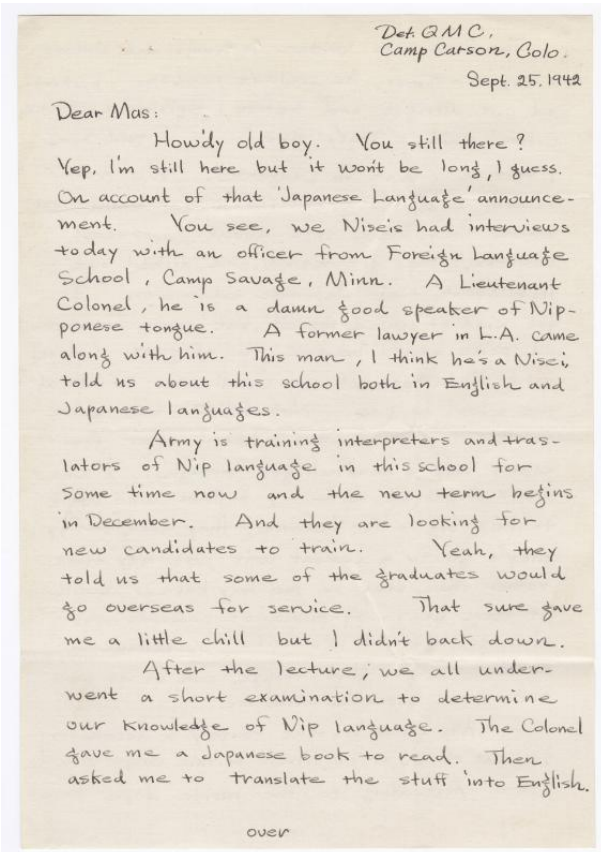 Det. Q M C,
Camp Carson, Colo.
Sept. 25, 1942
Dear Mas:
Howdy old boy. You still there?
Yep, I'm still here but it won't be long, I guess.
On account of that 'Japanese Language' announce-
ment. You see, we Niseis had interviews
today with an officer from Foreign Language
School, Camp Savage, Minn. A Lieutenant
Colonel, he is a damn good speaker of Nip-
ponese tongue. A former lawyer in L.A. came
along with him. This man, I think he's a Nisei,
told us about this school both in English and
Japanese languages.
Army is training interpreters and tras-
lators of Nip language in this school for
some time now and the new term begins
in December. And they are looking for
new candidates to train. Yeah, they
told us that some of the graduates would
go overseas for service. That sure gave
me a little chill but I didn't back down.
After the lecture, we all under-
went a short examination to determine
our knowledge of Nip language. The Colonel
gave me a Japanese book to read. Then
asked me to translate the stuff into English.
over